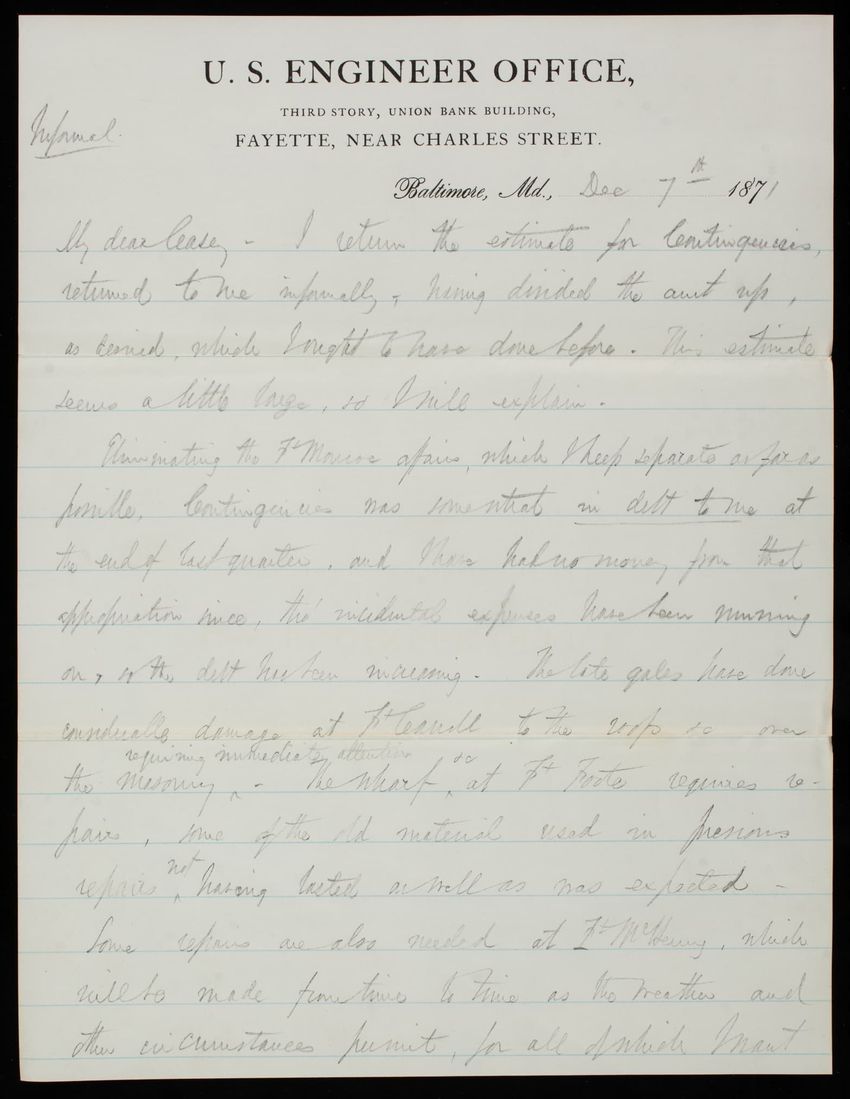 U. S. ENGINEER OFFICE,
THIRD STORY, UNION BANK BUILDING,
FAYETTE, NEAR CHARLES STREET.
Informal.
Baltimore, Md., Dec 7th 1871
My dear Casey - I return the estimate for Contingencies,
returned to me informally, having divided the amt up,
as desired, which I ought to have done before. This estimate
seems a little large, so I will explain.
Eliminating the Ft Monroe affairs, which I keep separate as far as
possible, Contingencies was somewhat in debt to me at
the end of last quarter, and I have had no money from that
appropriation since, tho' incidental expenses have been running
on, so the debt has been increasing. The late gales have done
considerable damage at Ft Carroll to the roofs &c over
requiring immediate attention
the masonry, - The wharf, &c at Ft Foote requires re-
pairs, some of the old material used in previous
repairs not having lasted as well as was expected -
Some repairs are also needed at Ft McHenry, which
will be made from time to time as the weather and
other circumstances permit, for all of which I want